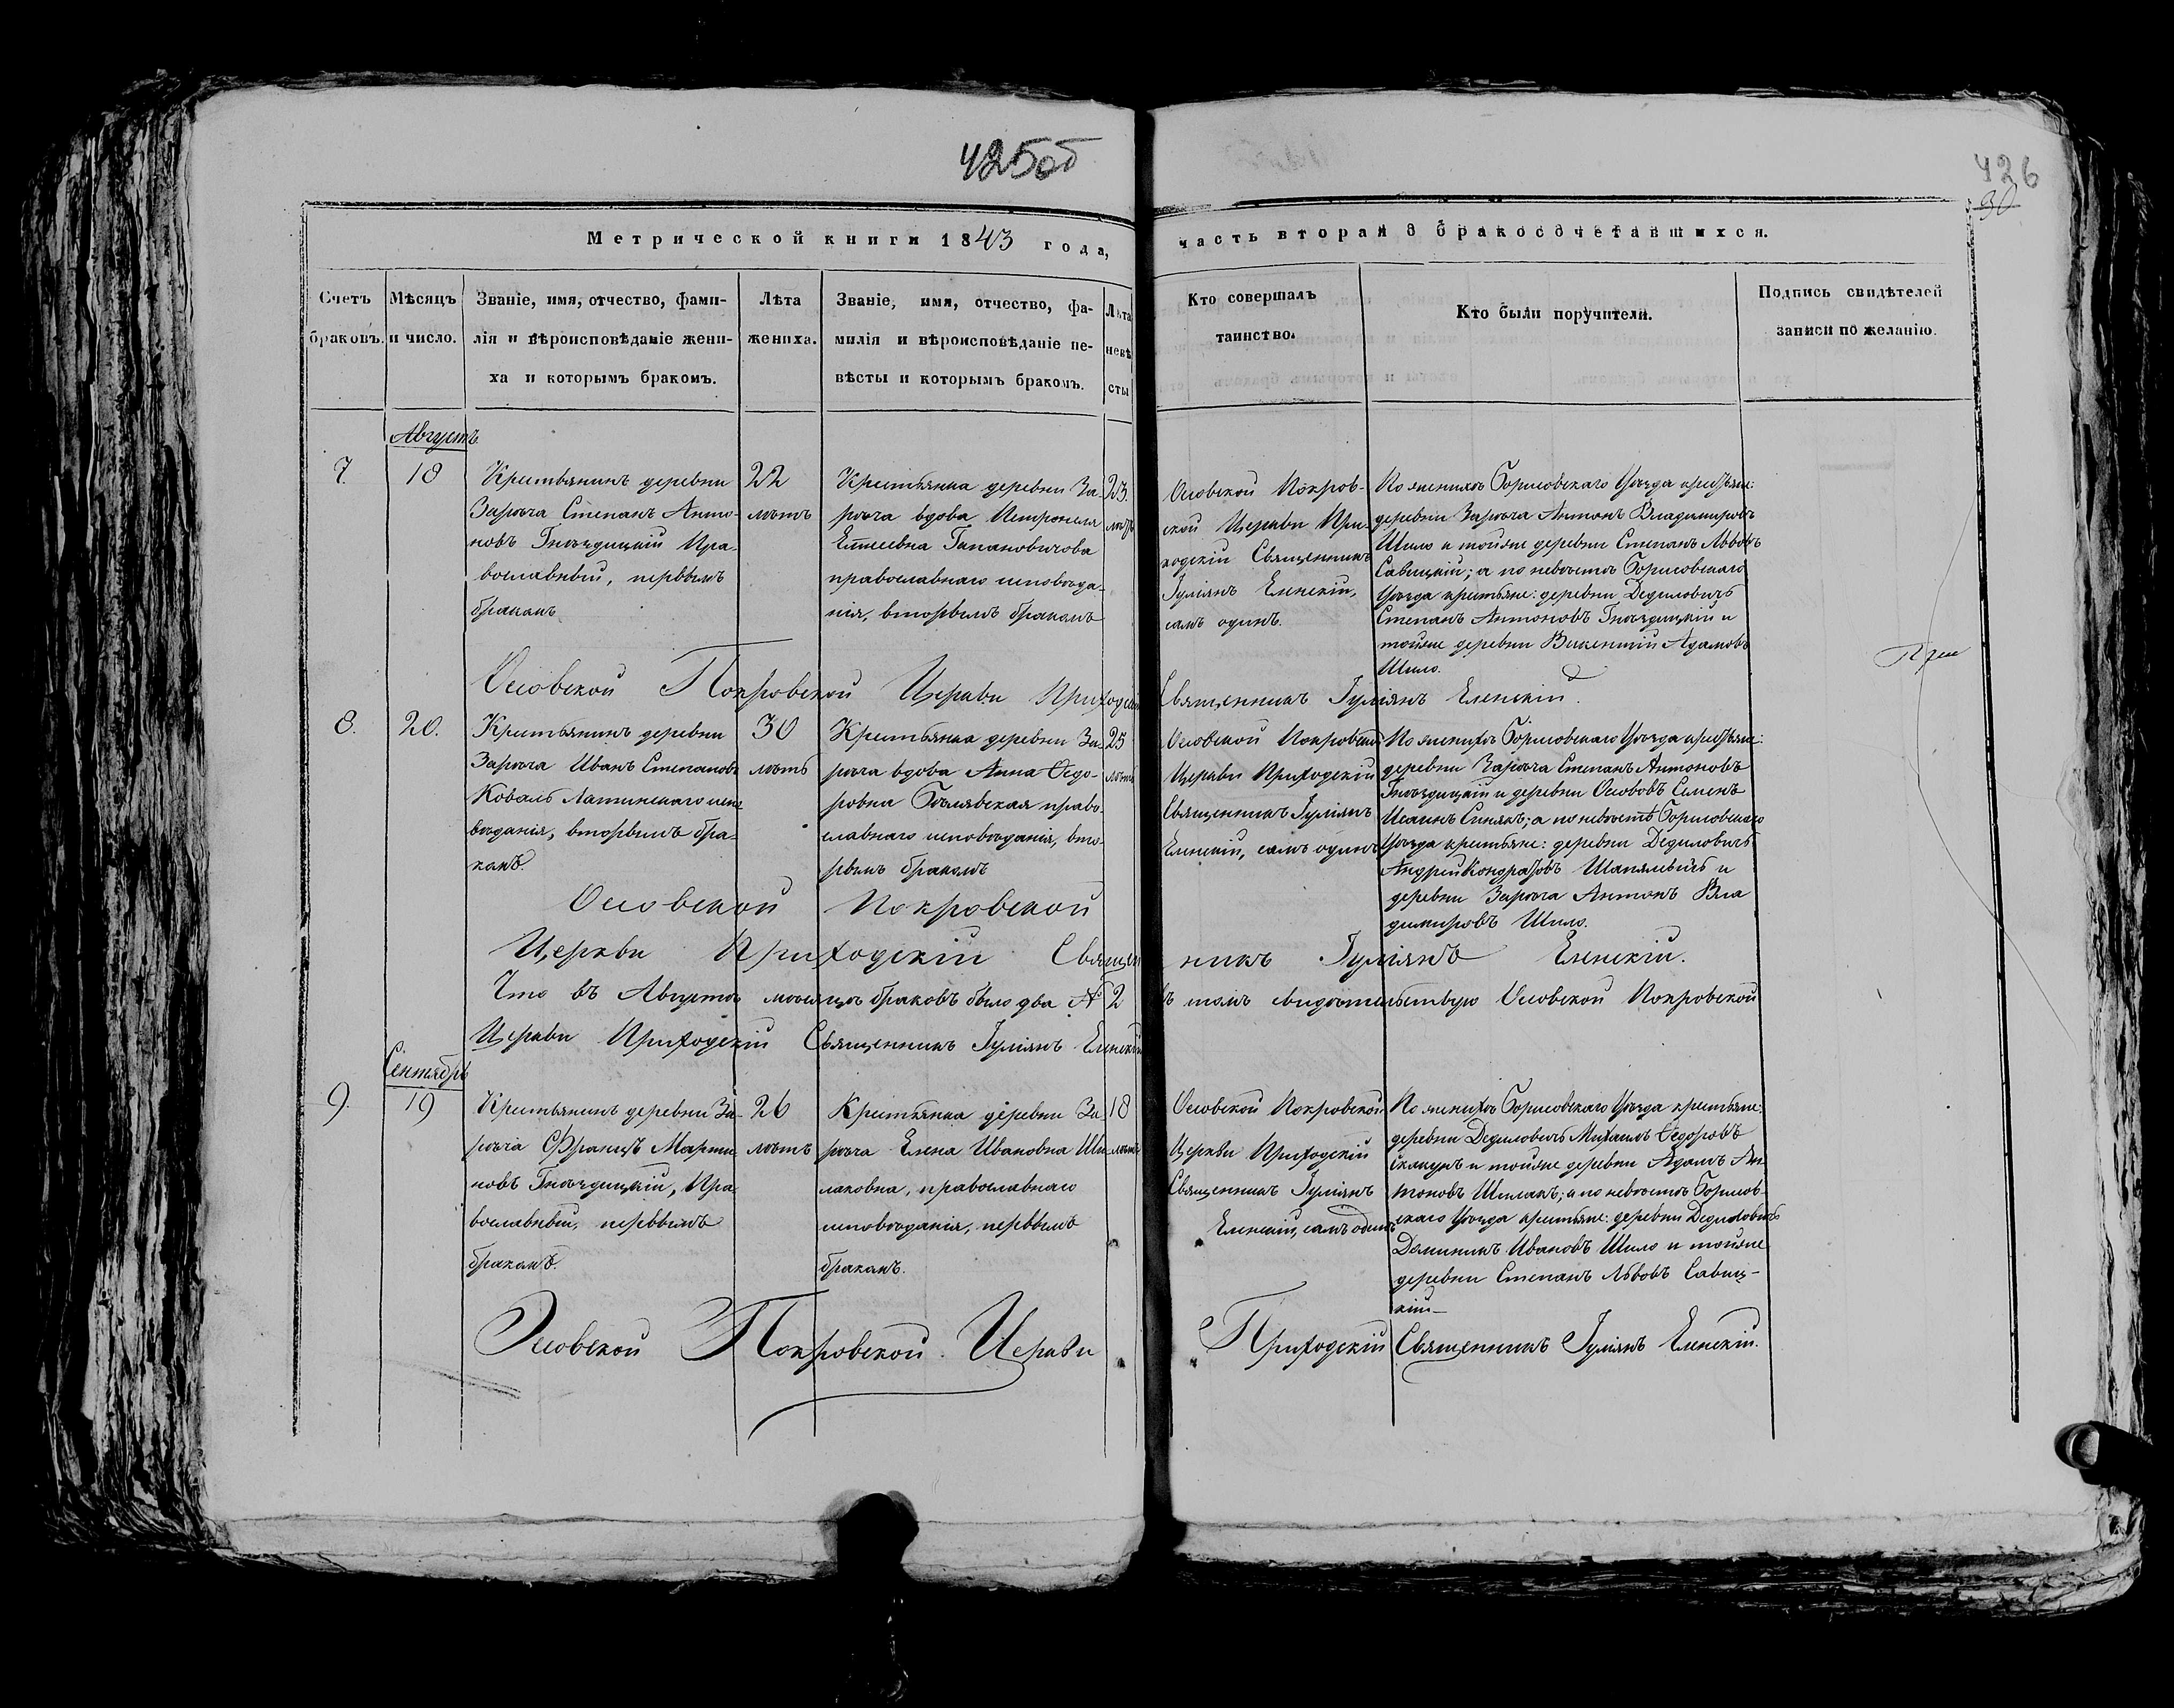 425об
426
30
Метрической книги 1843 года,
часть вторая о бракосочетавшихся.
Счетъ браковъ.
Мѣсяцъ и число.
Званіе, имя, отчество, фами-
лія и вѣроисповѣданіе жени-
ха и которымъ бракомъ.
Лѣта
жениха.
Званіе, имя, отчество, фа-
милія и вѣроисповѣданіе не-
вѣсты и которымъ бракомъ.
Лѣта
невѣ
сты
Кто совершалъ
таинство.
Кто были поручители.
Подпись свидѣтелей
записи по желанію.
Августъ
7.
18
Крестьянинъ деревни
Зарѣча Степанъ Анто-
новъ Гнѣздицкій Пра-
вославный, первымъ
бракомъ
22
лѣтъ
Крестьянка деревни За-
рѣча вдова Петронеля
Гапановичова
православнаго исповѣда-
нія, вторымъ бракомъ
23
лѣтъ
Осовской Покров-
ской Церкви При-
ходскій Священникъ
Іуліянъ Еленскій,
самъ одинъ.
По женихѣ Борисовскаго Уѣзда крестьяне:
деревни Зарѣча Антонъ Владимировъ
Шило и тойже деревни Степанъ Львовъ
Савицкій; а по невѣстѣ Борисовскаго
Уѣзда крестьяне: деревни Дедиловичъ
Степанъ Антоновъ Гнѣздицкій и
тойже деревни Викентій Адамовъ
Шило.
Осовской Покровской Церкви Приходскій Священникъ Іуліянъ Еленскій.
8.
20.
Крестьянинъ деревни
Зарѣча Иванъ Степановъ
Коваль Латинскаго испо
вѣданія, вторымъ бра-
комъ.
30
лѣтъ
Крестьянка деревни За-
рѣча вдова Анна Ѳедо-
ровна Бѣлявская право-
славнаго исповѣданія, вто-
рымъ бракомъ
25
лѣтъ
Осовской Покровской
Церкви Приходскій
Священникъ Іуліянъ
Еленскій, самъ одинъ
По женихѣ Борисовскаго Уѣзда крестьяне:
деревни Зарѣча Степанъ Антоновъ
Гнѣздицкій и деревни Осововъ Семенъ
Исаинъ Синякъ; а по невѣстѣ Борисовскаго
Уѣзда крестьяне: деревни Дедиловичъ
Андрей Кондратовъ
деревни Зарѣча Антонъ Вла
димировъ Шило.
Осовской Покровской
Церкви Приходскій Священникъ Іуліянъ Еленскій.
Что въ Августѣ мѣсяцѣ браковъ было два № 2 въ томъ свидѣтельствую Осовской Покровской
Церкви Приходскій Священникъ Іуліянъ Еленскій
Сентябрь
9.
19
Крестьянинъ деревни За-
рѣча Францъ Марти
новъ Гнѣздицкій, Пра-
вославный, первымъ
бракомъ.
26
лѣтъ
Крестьянка деревни За-
рѣча Елена Ивановна Ши-
лаковна, православнаго
исповѣданія, первымъ
бракомъ.
18
лѣтъ
Осовской Покровской
Церкви Приходскій
Священникъ Іуліянъ
Еленскій, самъ одинъ
По женихѣ Борисовскаго Уѣзда крестьяне:
деревни Дедиловичъ Михаилъ Ѳедоровъ
Скакунъ и тойже деревни Адамъ Ан-
тоновъ Шилакъ; а по невѣстѣ Борисов-
скаго Уѣзда крестьяне: деревни Дедиловичъ
Доминикъ Ивановъ Шило и тойже
деревни Степанъ Львовъ Савиц-
кій
Осовской Покровской Церкви Приходскій Священникъ Іуліянъ Еленскій.